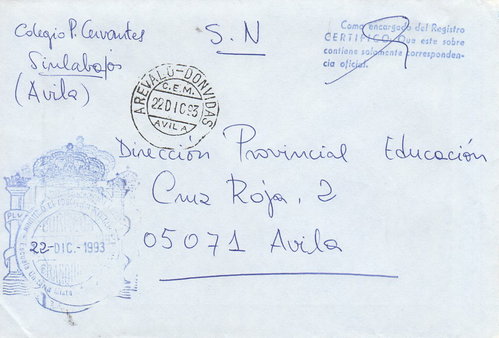 Colegio P. Cervantes
Sinlabajos
(Avila)
S. N
Como encargado del Registro
CERTIFICO: Que este sobre
contiene solamente corresponden-
cia oficial.
AREVALO-DONVIDAS
C.E.M.
22 DIC 93
AVILA
Dirección Provincial Educación
Cruz Roja, 2
05071 Avila
PLV
22-DIC.-1993